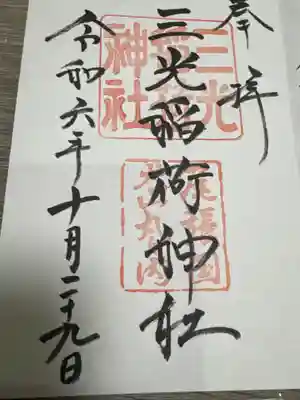 奉拝
三光稲荷神社
令和六年十月二十九日
三光
神社
尾張國